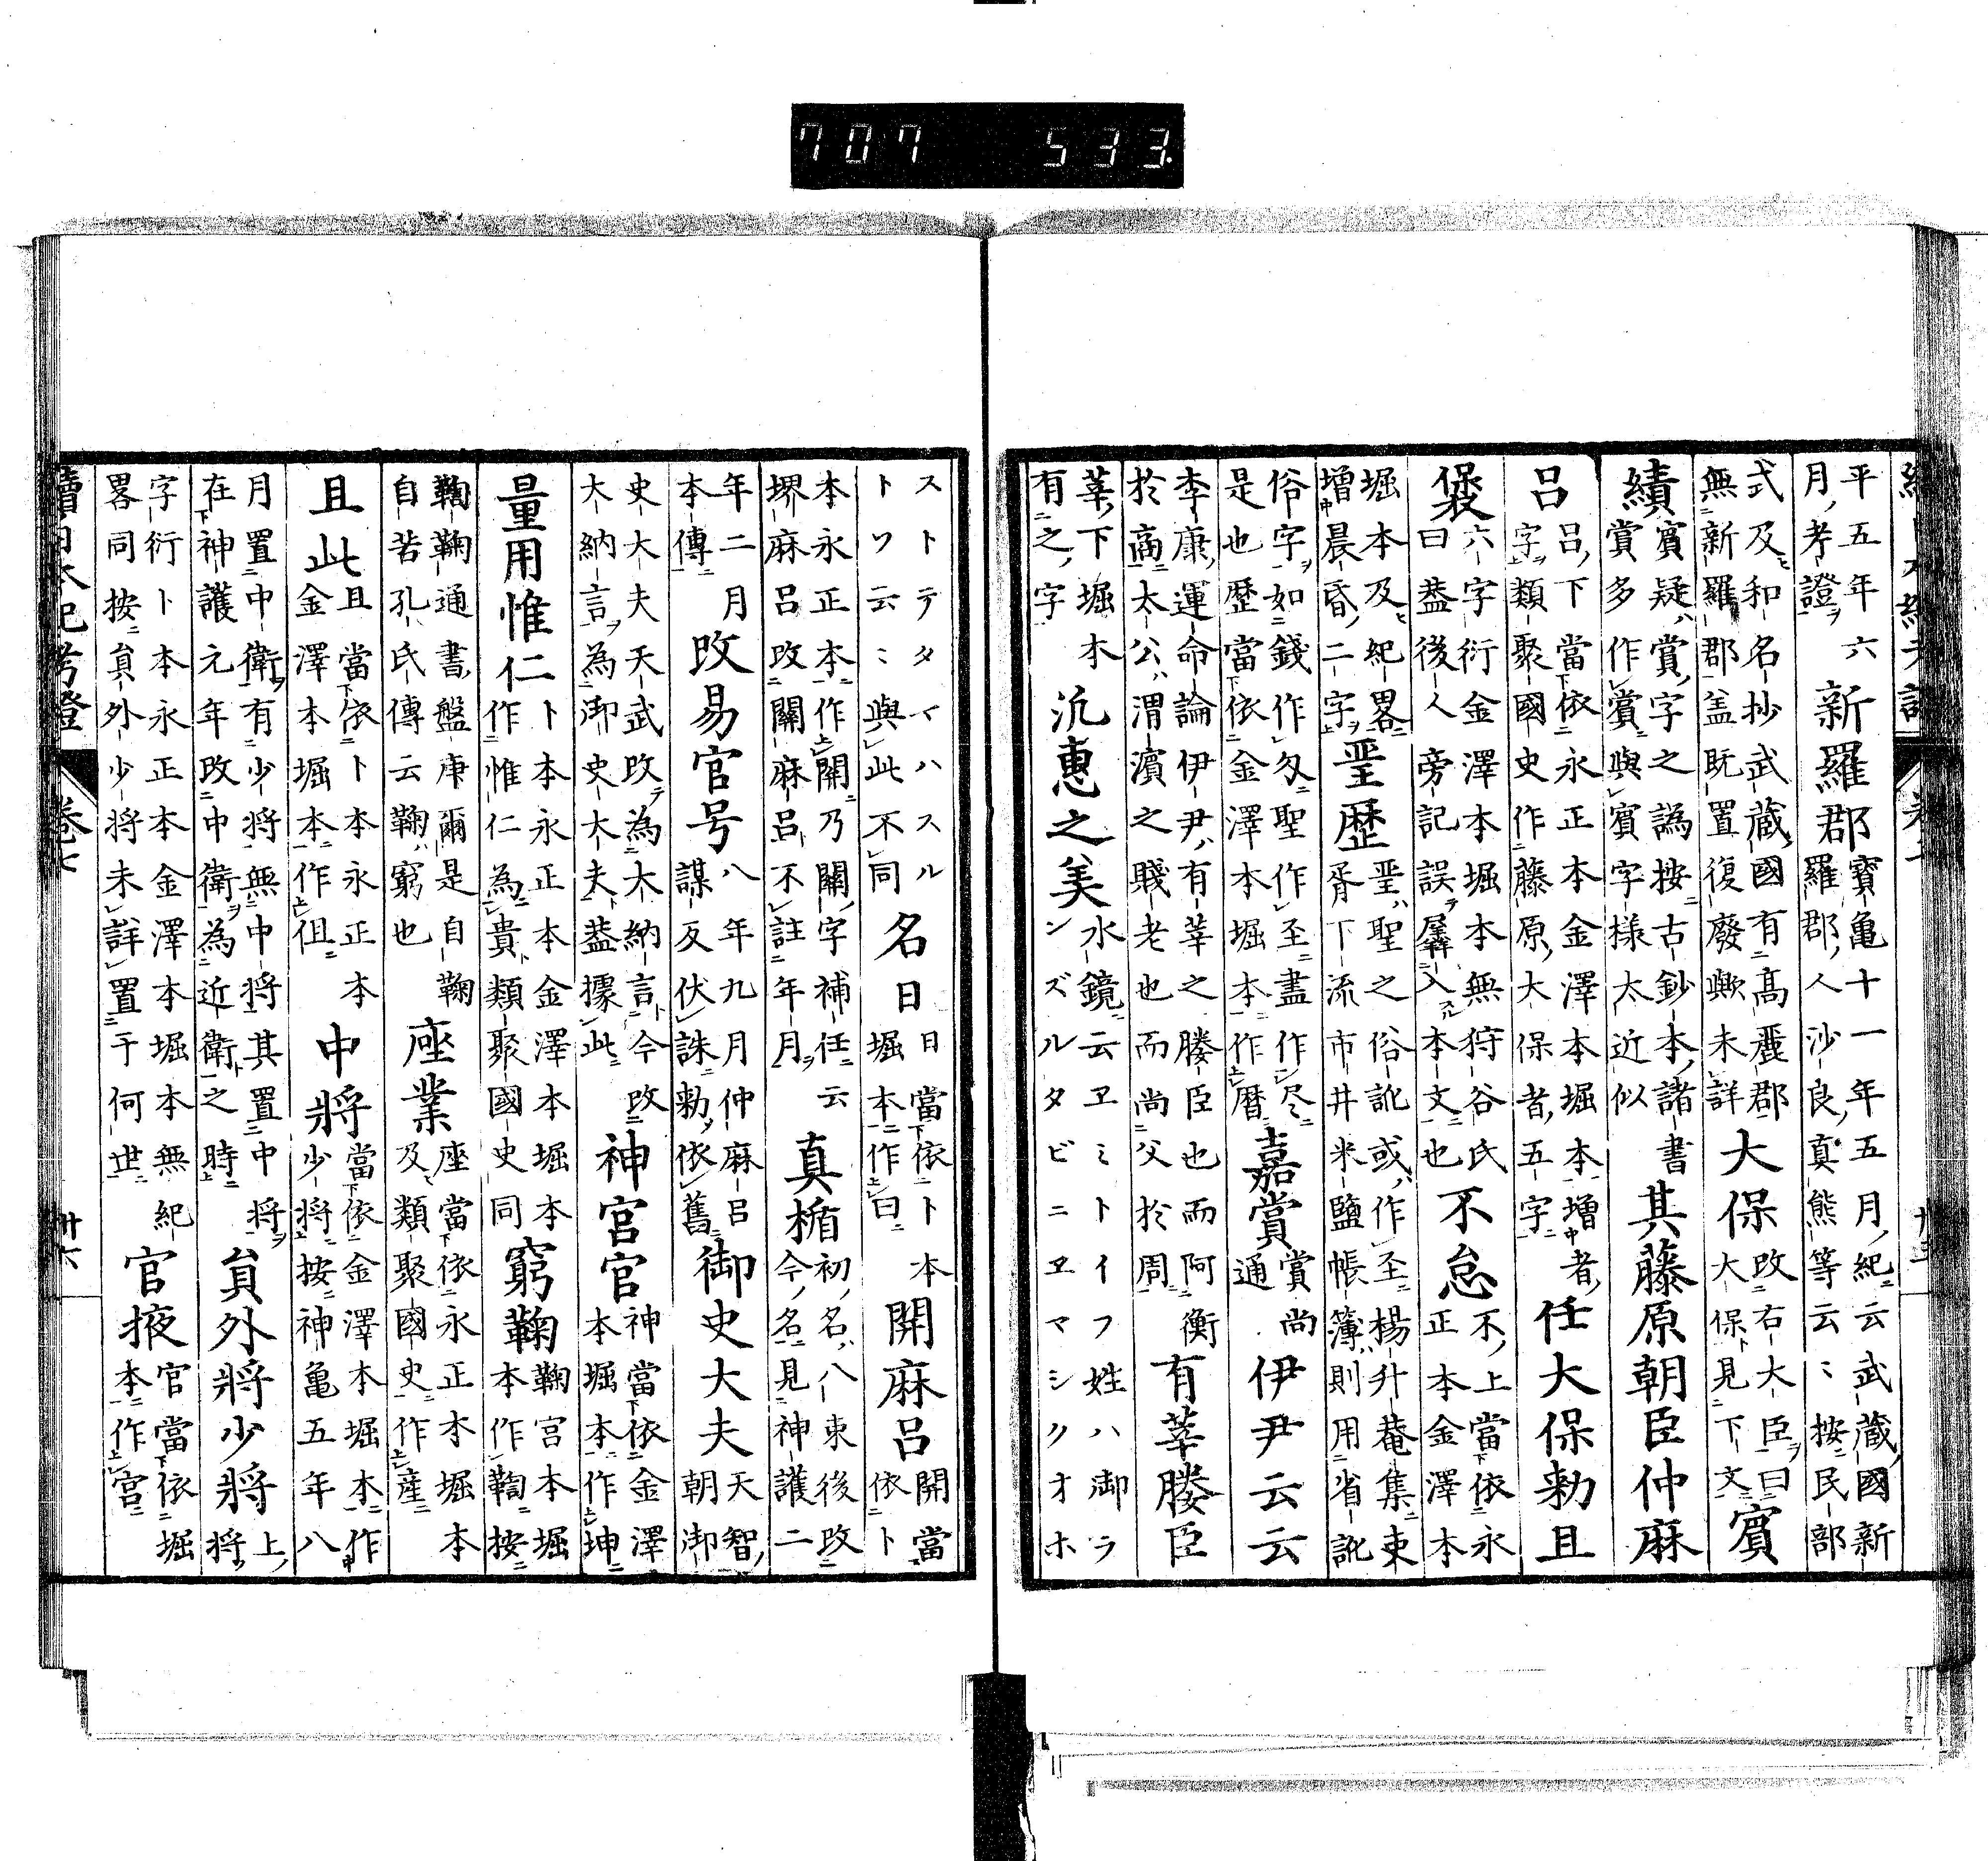 平五年六
月考證ヲ
新羅郡
寶亀十一年五月紀云武藏國新
羅郡人沙良真熊等云ミ按民部
式及和名抄武藏國有高麗郡
無新羅郡盖既置復廢歟未詳
大保
改右大臣ヲ曰
大保見下文
賓
績
賓疑賞字之譌按古鈔本諸書
賞多作賞與賓字字様太近似
其藤原朝臣仲麻
呂
呂下當依永正本金澤本堀本增者
字類聚國史作藤原大保者五字
任大保勅且
褒
六字衍金澤本堀本無狩谷氏
曰葢後人旁記誤羼入本文也
不怠
不上當依永
正本金澤本
堀本及紀畧
增晨昏二字
琞歷
琞聖之俗訛或作至楊升菴集吏
胥下流市井米鹽帳簿則用省訛
俗字如錢作匁聖作至盡作尽
是也歷當依金澤本堀本作曆
嘉賞
賞尚
通
伊尹云云
李康運命論伊尹有莘之媵臣也而阿衡
於商太公渭濱之賤老也而尚父於周
有莘媵臣
莘下堀本
有之字
汎惠之美
水鏡云ヱミトイフ姓ハ御ラ
ンズルタビニヱマシクオホ
ストテタマハスル
トソ云ミ與此不同
名日
日當依卜本
堀本作曰
開麻呂
開當
依卜
本永正本作關乃關字補任云
堺麻呂改關麻呂不註年月
真楯
初名八束後改
今名見神護二
年二月
本傳
改易官号
八年九月仲麻呂
謀反伏誅勅依舊
御史大夫
天智
朝御
史大夫天武改為大納言今改
大納言為御史大夫葢據此
神宮官
神當依金澤
本堀本作坤
量用惟仁
卜本永正本金澤本堀本
作惟仁為貴類聚國史同
窮鞠
鞠宮本堀
本作鞫按
鞫鞠通書盤庚爾是自鞠
自苦孔氏傳云鞠窮也
座業
座當依永正本堀本
及類聚國史作產
且此
且當依卜本永正本
金澤本堀本作但
中將
當依金澤本堀本作
少將按神亀五年八
月置中衛有少將無中將其置中將
在神護元年改中衛為近衛之時
貟外將少將
上
將
字衍卜本永正本金澤本堀本無紀
畧同按貟外少將未詳置于何世
官掖
官當依堀
本作宮
續日本紀考證
卷七
廿六
707 533.